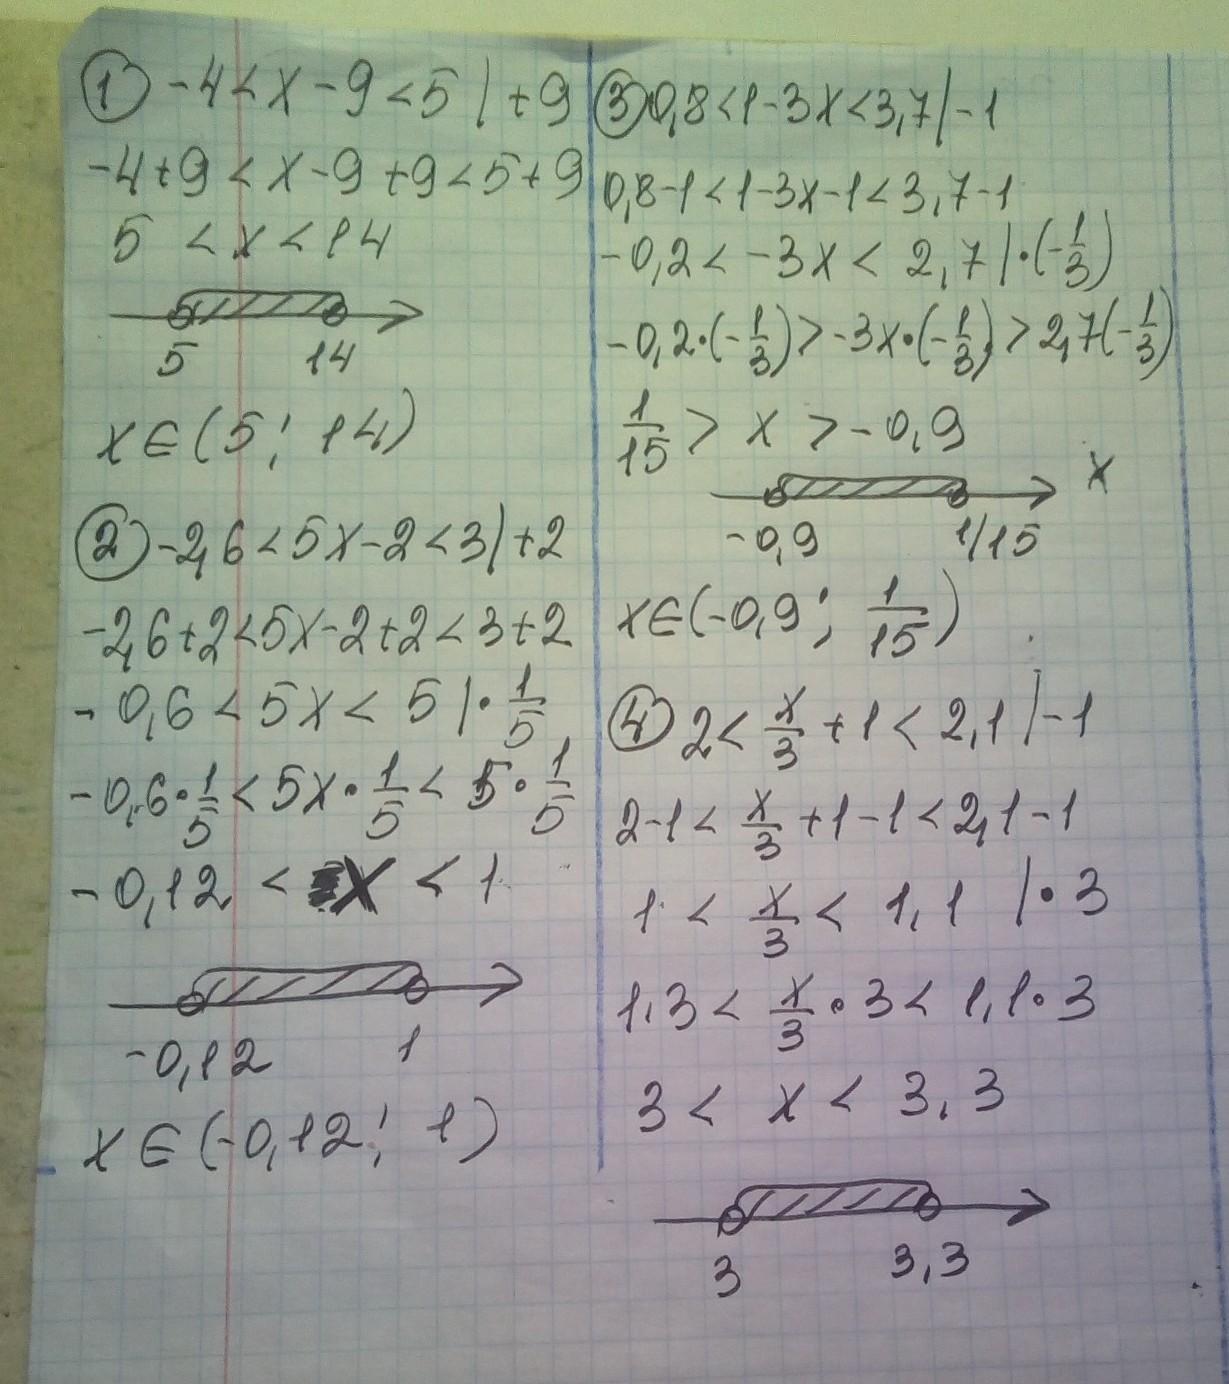 ① -4 < x - 9 < 5 | +9
-4+9 < x - 9 + 9 < 5+9
5 < x < 14
5 14
x ∈ (5; 14)
② -2,6 < 5x - 2 < 3 | +2
-2,6+2 < 5x - 2 + 2 < 3 + 2
-0,6 < 5x < 5 | · 1/5
-0,6 · 1/5 < 5x · 1/5 < 5 · 1/5
-0,12 < x < 1
-0,12 1
x ∈ (-0,12; 1)
③ 0,8 < 1 - 3x < 3,7 | -1
0,8-1 < 1-3x-1 < 3,7-1
-0,2 < -3x < 2,7 | · (-1/3)
-0,2 · (-1/3) > -3x · (-1/3) > 2,7(-1/3)
1/15 > x > -0,9
x
-0,9 1/15
x ∈ (-0,9; 1/15)
④ 2 < x/3 + 1 < 2,1 | -1
2-1 < x/3 + 1 - 1 < 2,1 - 1
1 < x/3 < 1,1 | · 3
1·3 < x/3 · 3 < 1,1 · 3
3 < x < 3,3
3 3,3